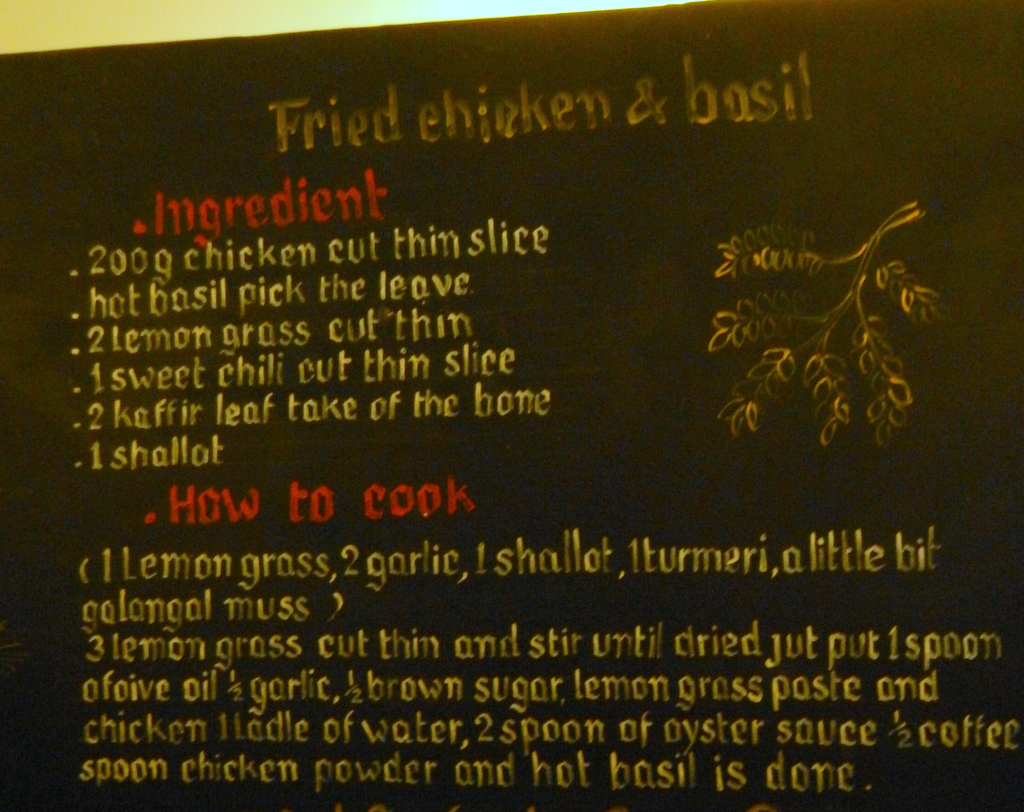 Fried chicken & basil
.Ingredient
.200g chicken cut thin slice
.hot basil pick the leave
.2 lemon grass cut thin
.1 sweet chili cut thin slice
.2 kaffir leaf take of the bone
.1 shallot
.How to cook
(1 Lemon grass, 2 garlic, 1 shallot, 1 turmeri, a little bit
galangal muss )
3 lemon grass cut thin and stir until dried jut put 1 spoon
ofoive oil ½ garlic, ½ brown sugar, lemon grass paste and
chicken 1 Ladle of water, 2 spoon of oyster sauce ½ coffee
spoon chicken powder and hot basil is done.